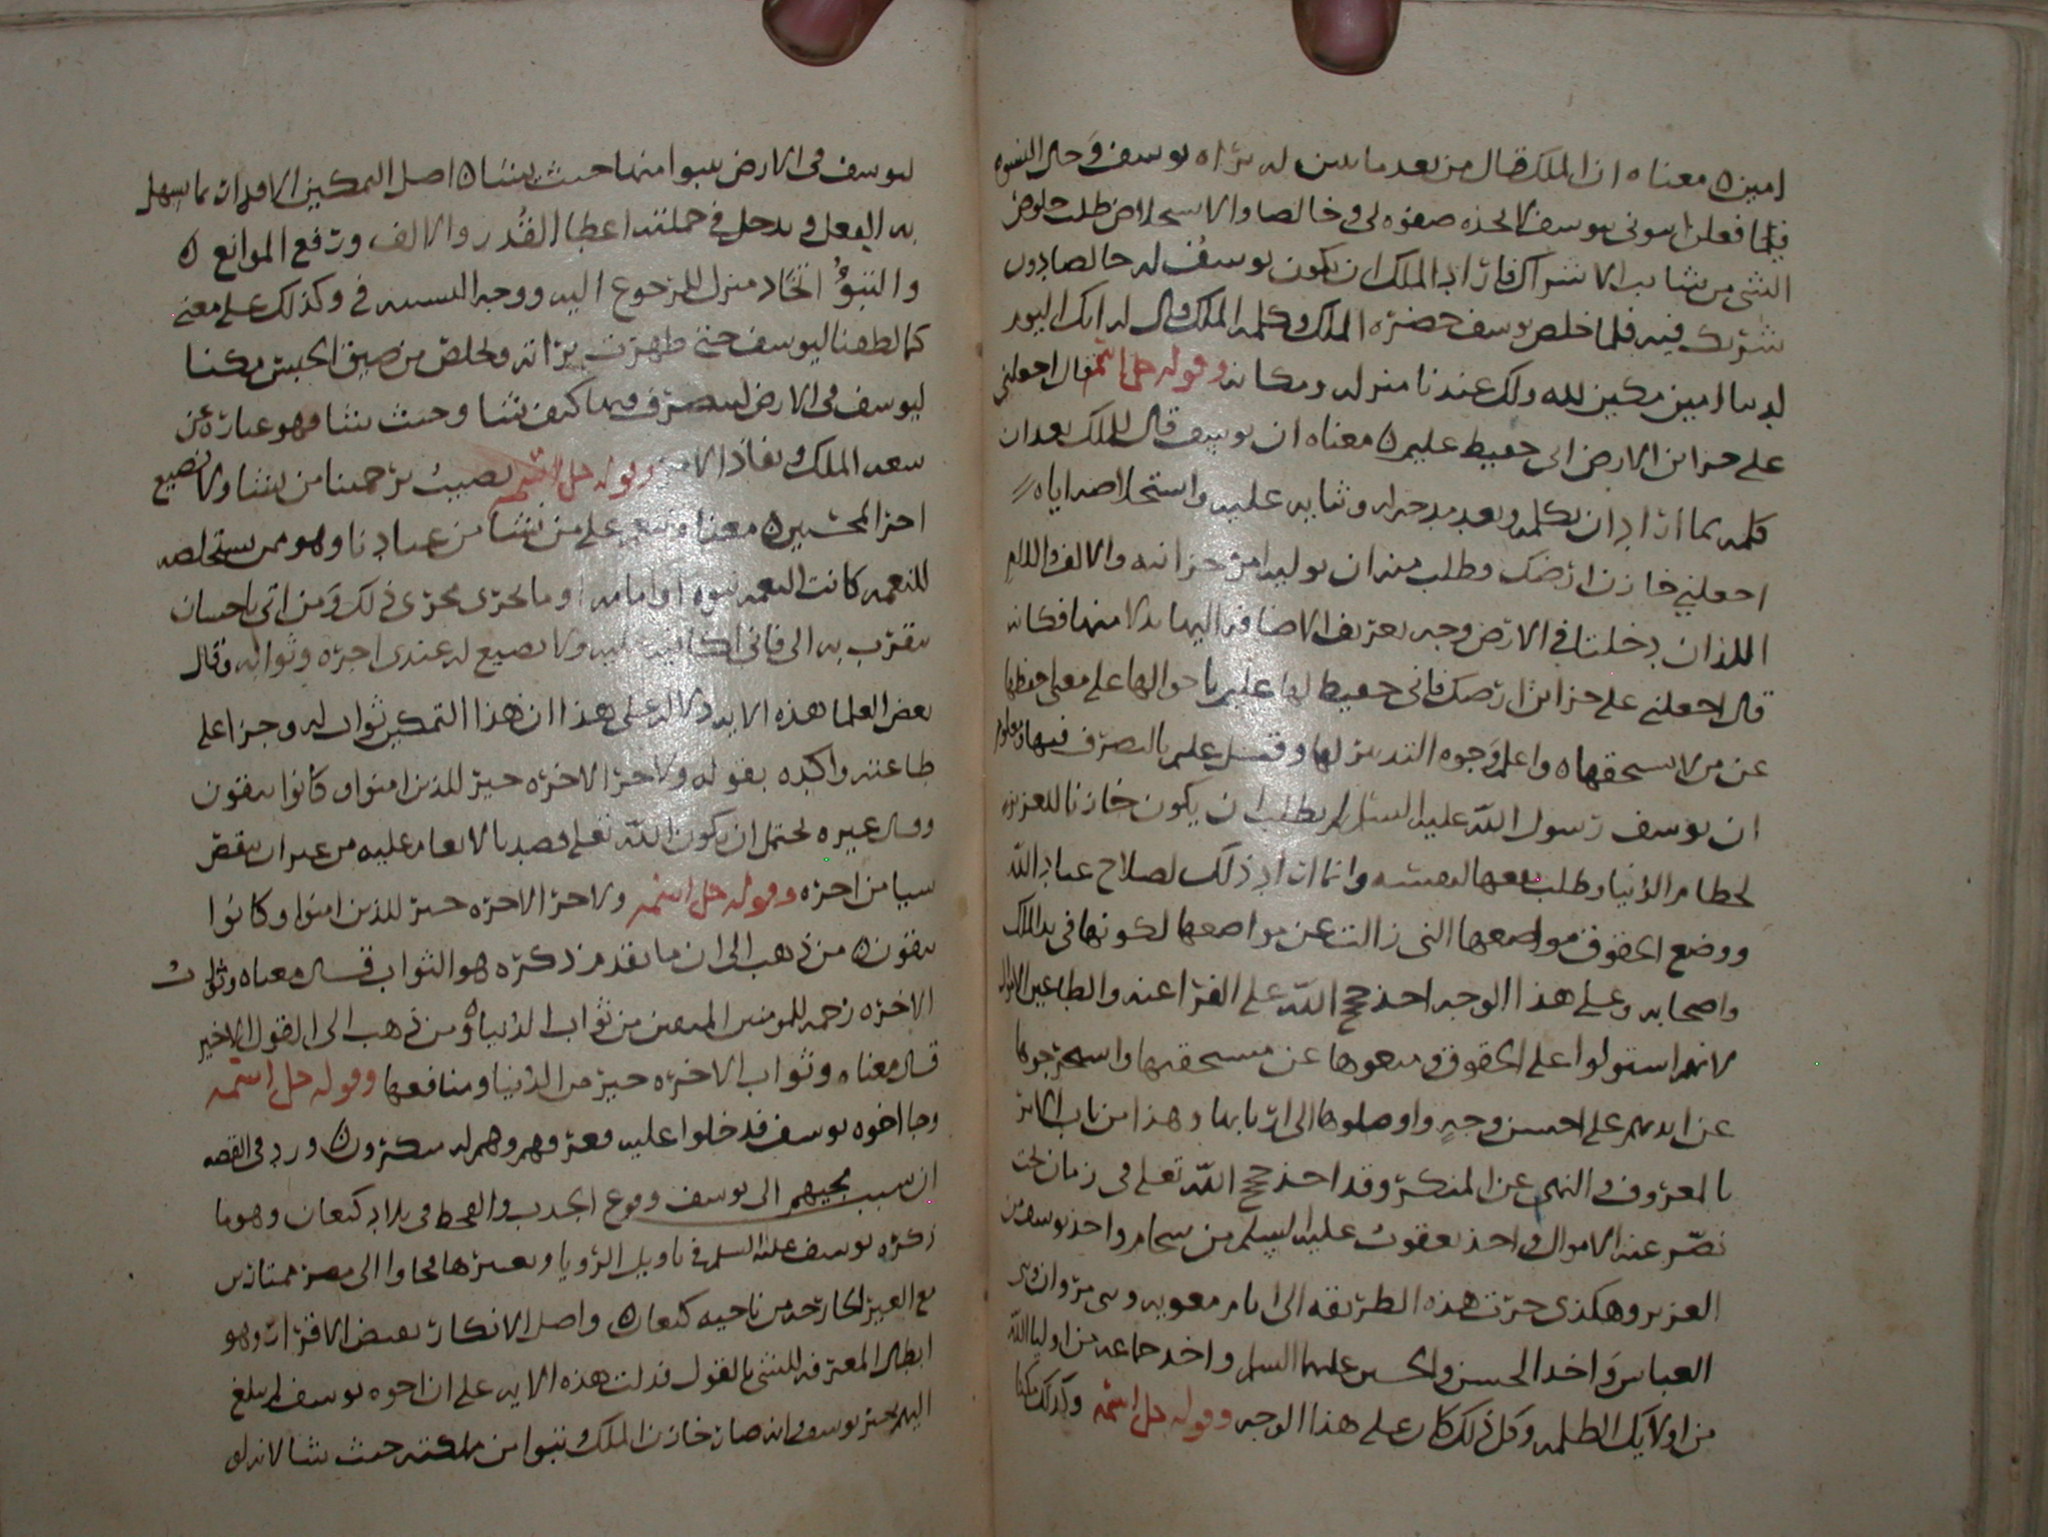 امين ه معناه ان الملك قال من بعد ما تبين له براه يوسف وحال النسوه
فيما فعلن ايتوني بيوسف لاتخذه صفوه لي وخالصا والاستخلاص طلب خلوص
الشي من شايب الاشتراك فاراد الملك ان يكون يوسف له خالصا دون
شريك فيه فلما خلص يوسف حضره الملك وكلمه الملك وقال له انك اليوم
لدينا امين مكين لله ولك عندنا منزله ومكانه وقوله جل اسمه قال اجعلني
على خزاين الارض اني حفيظ عليم ه معناه ان يوسف قال للملك بعد ان
كلمه بما اراد ان يكلمه وبعد مدحه له وثنايه عليه واستخلاصه اياه
اجعلني خازن ارضك وطلب منه ان يوليه امر خزانته والالف واللام
اللذان دخلتا في الارض وجه تعريف الاضافه اليها بدلا منها فكانه
قال اجعلني على خزاين ارضك فاني حفيظ لها عليم باحوالها على معنى حفظها
عن من لا يستحقها ه واعلم وجوه التدبير لها وقيل عليم بالتصرف فيها ومعلوم
ان يوسف رسول الله عليه السلام لم يطلب ان يكون خازنا للعزيز
لحطام الدنيا وطلب نفعها لنفسه وانما اراد ذلك لصلاح عباد الله
ووضع الحقوق مواضعها التي زالت عن مواضعها لكونها في يد الملك
واصحابه وعلى هذا الوجه اخذ حجج الله على الفراعنه والطاغين الاموال
لانهم استولوا على الحقوق ومنعوها عن مستحقيها واستخرجوها
عن ايديهم على احسن وجه واوصلوها الى اربابها وهذا من باب الامر
بالمعروف والنهي عن المنكر وقد اخذ حجج الله تعلى في زمان بخت
نصر عنه الاموال واخذ يعقوب عليه السلم من سحام واخذ يوسف من
العزيز وهكذى جرت هذه الطريقه الى ايام معويه وبني مروان وبني
العباس واخذ الحسن والحسين عليهما السلم واخذ جماعه من اوليا الله
من اولايك الظلمه وكل ذلك كان على هذا الوجه وقوله جل اسمه وكذلك مكنا
ليوسف في الارض يتبوا منها حيث يشا ه اصل التمكين الاقدار بما يسهل
به الفعل ويدخل في جملته اعطا القدر والالف ورفع الموانع ه
والتبوُّ اتخاد منزل للرجوع اليه ووجه التشبيه في وكذلك على معنى
كما لطفنا ليوسف حتى ظهرت براته وتخلص من ضيق الحبس مكنا
ليوسف في الارض ليتصرف فيها كيف يشا وحيث يشا وهو عباره عن
سعه الملك ونفاذ الامر وقوله جل اسمه نصيب برحمتنا من نشا ولا نضيع
اجر المحسنين ه معناه ننعم على من نشا من عبادنا وهو ممن يستخلصه
للنعمه كانت النعمه نبوه او امامه او ما يجرى مجرى ذلك ومن اتى باحسان
يتقرب به الى فاني اكافيه عليه ولا يضيع له عندى اجره وثوابه وقال
بعض العلما هذه الايه داله على هذا ان هذا التمكين ثواب له وجزا على
طاعته واكده بقوله ولاجر الاخره خير للذين امنوا وكانوا يتقون
وقال غيره يحتمل ان يكون الله تعلى قصد بالانعام عليه من غير ان ينقص
شيا من اجره وقوله جل اسمه ولاجر الاخره خير للذين امنوا وكانوا
يتقون ه من ذهب الى ان ما تقدم ذكره هو الثواب قال معناه وثواب
الاخره رحمه للمومنين المتقين من ثواب الدنيا ه ومن ذهب الى القول الاخير
قال معناه وثواب الاخره خير من الدنيا ومنافعها وقوله جل اسمه
وجا اخوه يوسف فدخلوا عليه فعرفهم وهم له منكرون ه ورد في القصه
ان سبب مجيهم الى يوسف وقوع الجدب والقحط في بلاد كنعان وهو ما
ذكره يوسف عليه السلم في تاويل الرويا وتعبيرها فجاوا الى مصر ممتارين
مع العير الخارجه من ناحيه كنعان ه واصل الانكار نقيض الاقرار وهو
ابطال المعرفه للشي بالقول فدلت هذه الايه على ان اخوه يوسف لم يبلغ
اليهم خبر يوسف وانه صار خازن الملك يتبوا من مملكته حيث يشا لانه لو